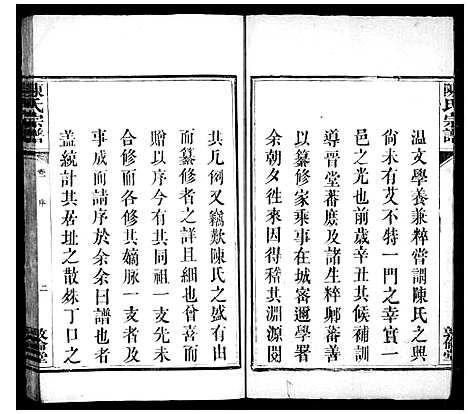 陳氏宗譜
溫文學養兼粹嘗謂陳氏之興
尚未有艾不特一門之幸實一
邑之光也前歲辛丑其候補訓
導晉堂蕃庶及諸生粹卿蕃善
以纂修家乘事在城密邇學署
余朝夕往來因得稽其淵源閱
其凡例又竊歎陳氏之盛有由
而纂修者之詳且細也曾喜而
致以序今有其同祖一支先未
合修而各修其嫡脈一支者及
事成而請序於余余曰譜也者
蓋統計其居址之散殊丁口之
陳氏宗譜
卷
序
二
敦倫堂